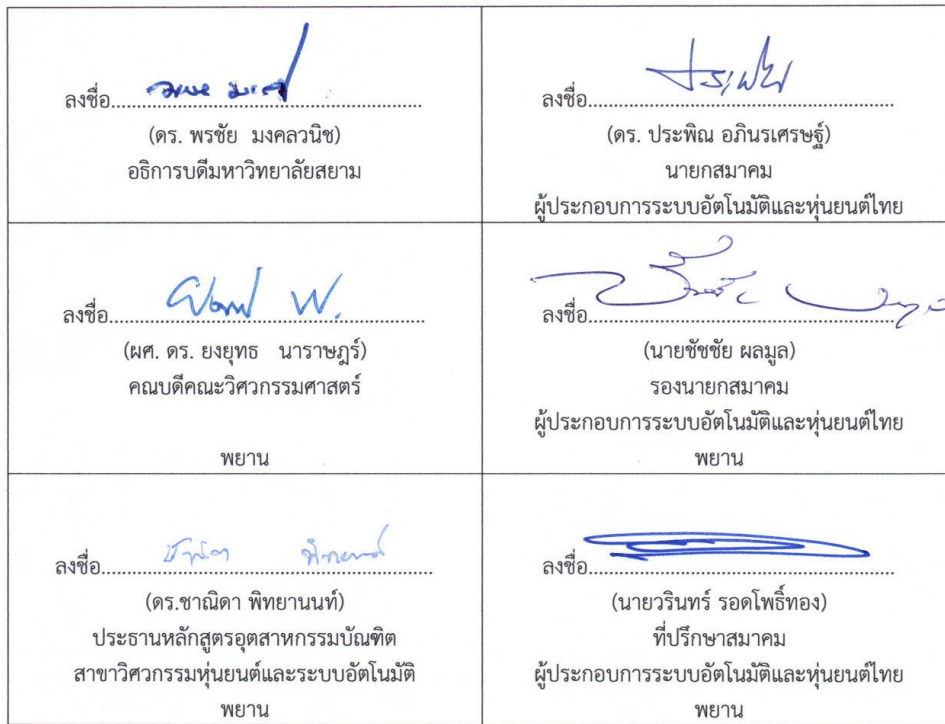 ลงชื่อ
(ดร. พรชัย มงคลวนิช)
อธิการบดีมหาวิทยาลัยสยาม
ลงชื่อ
(ดร. ประพิณ อภินรเศรษฐ์)
นายกสมาคม
ผู้ประกอบการระบบอัตโนมัติและหุ่นยนต์ไทย
ลงชื่อ
(ผศ. ดร. ยงยุทธ นาราษฎร์)
คณบดีคณะวิศวกรรมศาสตร์
พยาน
ลงชื่อ
(นายชัชชัย ผลมูล)
รองนายกสมาคม
ผู้ประกอบการระบบอัตโนมัติและหุ่นยนต์ไทย
พยาน
ลงชื่อ
(ดร.ชาณิดา พิทยานนท์)
ประธานหลักสูตรอุตสาหกรรมบัณฑิต
สาขาวิศวกรรมหุ่นยนต์และระบบอัตโนมัติ
พยาน
ลงชื่อ
(นายวรินทร์ รอดโพธิ์ทอง)
ที่ปรึกษาสมาคม
ผู้ประกอบการระบบอัตโนมัติและหุ่นยนต์ไทย
พยาน